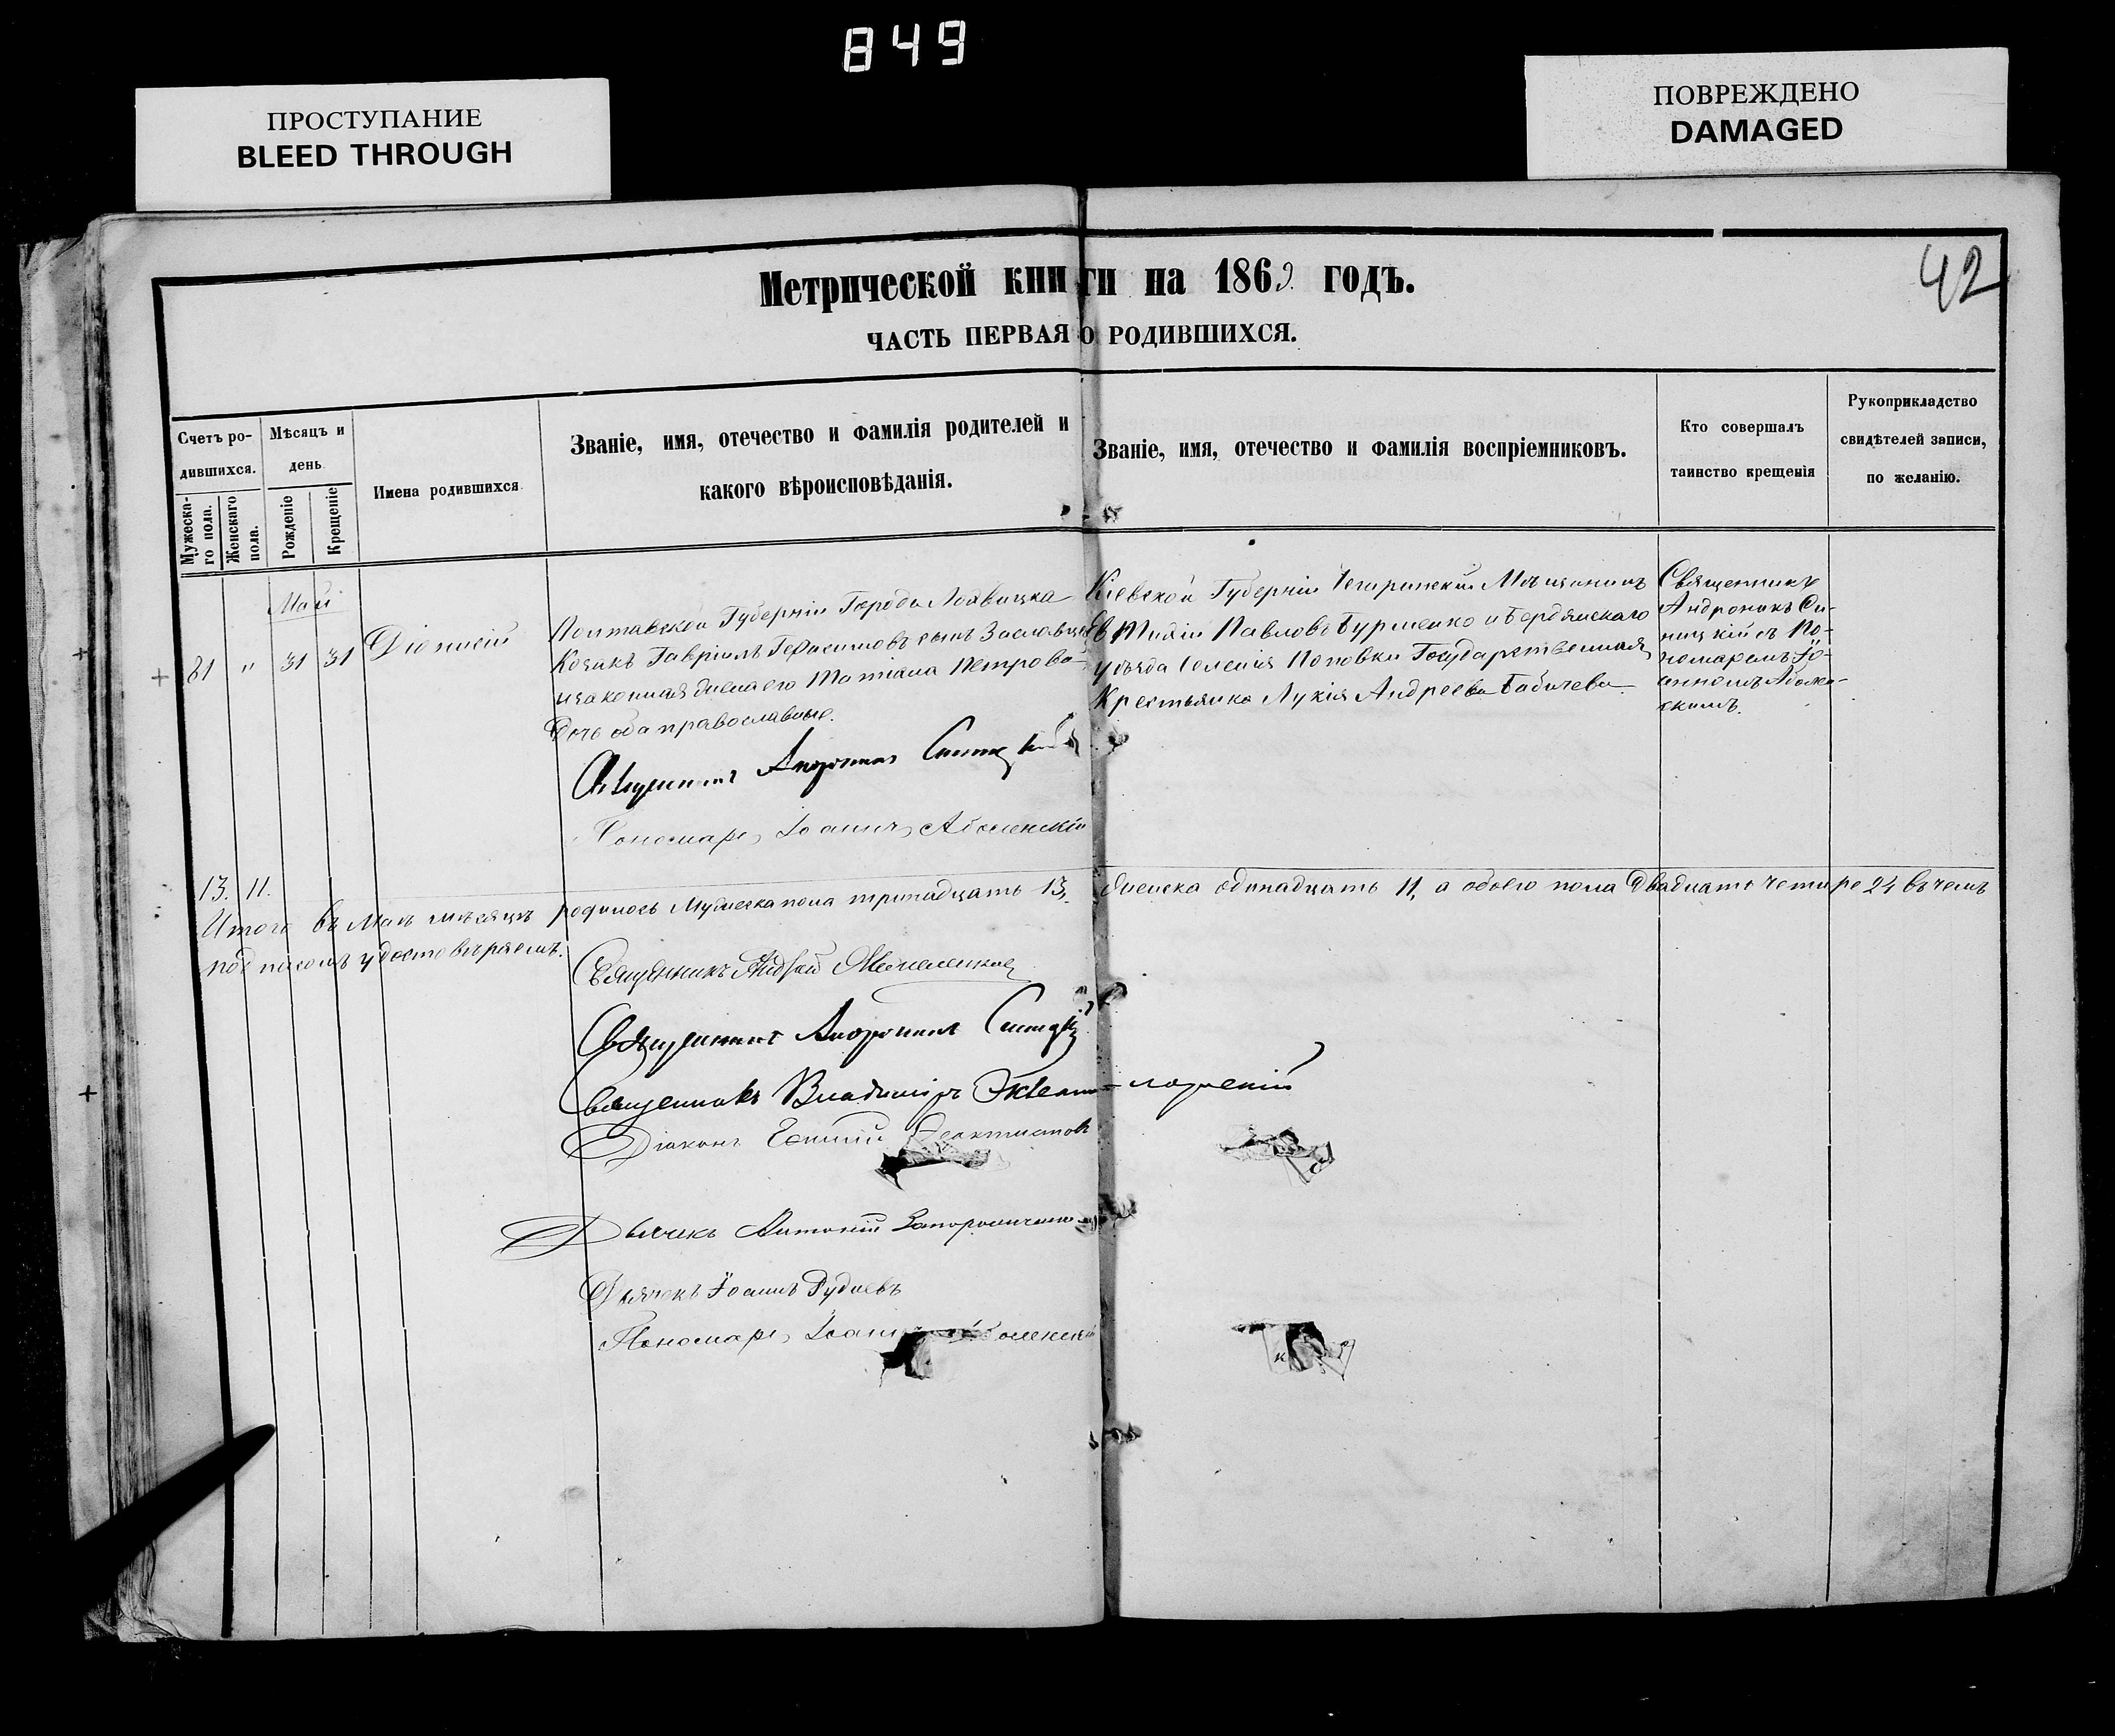 849
ПРОСТУПАНИЕ
BLEED THROUGH
ПОВРЕЖДЕНО
DAMAGED
42
Метрической книги на 1869 годъ.
ЧАСТЬ ПЕРВАЯ О РОДИВШИХСЯ.
Счетъ ро-
дившихся.
Мужеска-
го пола.
Женскаго
пола.
Мѣсяцъ и
день
Рожденіе
Крещеніе
Имена родившихся
Званіе, имя, отечество и фамилія родителей и
какого вѣроисповѣданія.
Званіе, имя, отечество и фамилія воспріемниковъ.
Кто совершалъ
таинство крещенія
Рукоприкладство
свидѣтелей записи,
по желанію.
Май
81 " 31 31 Діонисій
Полтавской Губерніи Города Лохвицка
Козакъ Гавріилъ Герасимовъ сынъ
изаконная жена его Татіана Петрова
дочь оба православные.
Кіевской Губерніи Чигиринскій Мѣщанинъ
Павловъ Бурменко и Бердянскаго
уѣзда Селенія Поповки Государственная
Крестьянка Лукія Андреева Бабичева
Священникъ
Андроникъ Си-
ницкій съ По-
номаремъ Іо-
анномъ
Священникъ Андроникъ Синицкій
Пономарь Іоаннъ
13. 11.
Итого въ Маѣ мѣсяцѣ родилось Мужеска пола тринадцать 13, Женска одинадцать 11, а обоего пола Двадцать четыре 24 въ чемъ
подписомъ удостовѣряемъ.
Священникъ Андрей
Священникъ Андроникъ Синицкій
Священникъ Владиміръ
Діаконъ Феоктистовъ
Дьячекъ Антоній
Дьячекъ Іоаннъ Рудневъ
Пономарь Іоаннъ